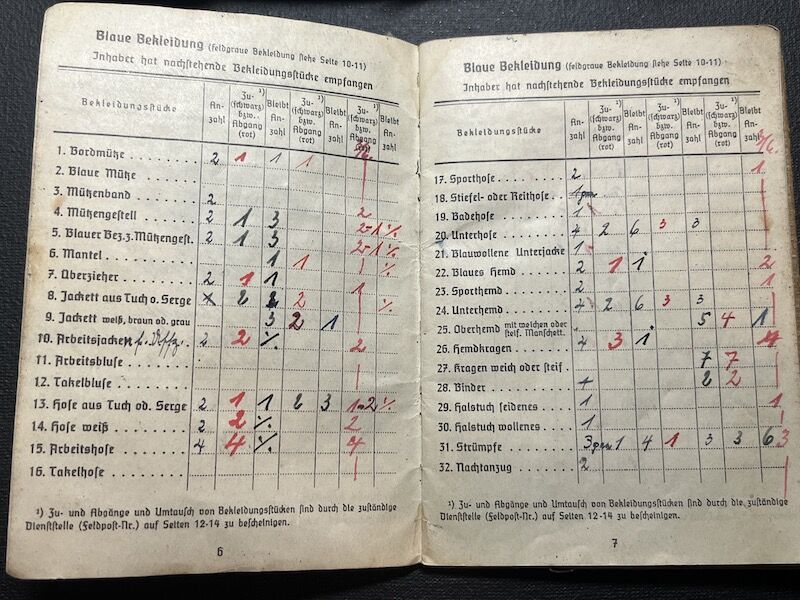 Blaue Bekleidung (feldgraue Bekleidung siehe Seite 10-11)
Inhaber hat nachstehende Bekleidungsstücke empfangen
Bekleidungsstücke | An-zahl | Zu-¹) (schwarz) bzw. Abgang (rot) | Bleibt An-zahl | Zu-¹) (schwarz) bzw. Abgang (rot) | Bleibt An-zahl | Zu-¹) (schwarz) bzw. Abgang | Bleibt An-zahl
1. Bordmütze 2 1 1 1
2. Blaue Mütze
3. Mützenband 2
4. Mützengestell 2 1 3 2
5. Blauer Bez. z. Mützengest. 2 1 3 2-1 %
6. Mantel 1 1 %
7. Überzieher 2 1 1 1
8. Jackett aus Tuch o. Serge 2 2 2 %
9. Jackett weiß, braun od. grau 3 2 1
10. Arbeitsjacken 2 2 % 2
11. Arbeitsbluse
12. Takelbluse
13. Hose aus Tuch od. Serge 2 1 1 2 3 2 %
14. Hose weiß 2 2 % 2
15. Arbeitshose 4 4 % 4
16. Takelhose
¹) Zu- und Abgänge und Umtausch von Bekleidungsstücken sind durch die zuständige
Dienststelle (Feldpost-Nr.) auf Seiten 12-14 zu bescheinigen.
6
Blaue Bekleidung (feldgraue Bekleidung siehe Seite 10-11)
Inhaber hat nachstehende Bekleidungsstücke empfangen
Bekleidungsstücke | An-zahl | Zu-¹) (schwarz) bzw. Abgang (rot) | Bleibt An-zahl | Zu-¹) (schwarz) bzw. Abgang (rot) | Bleibt An-zahl | Zu-¹) (schwarz) bzw. Abgang (rot) | Bleibt An-zahl
17. Sporthose 2 1
18. Stiefel- oder Reithose
19. Badehose 1
20. Unterhose 4 2 6 3 3
21. Blauwollene Unterjacke 1
22. Blaues Hemd 2 1 1 2
23. Sporthemd 2 1
24. Unterhemd 4 2 6 3 3
25. Oberhemd mit weichen oder steif. Manschett. 5 4 1
26. Hemdkragen 4 3 1 4
27. Kragen weich oder steif 7 7
28. Binder 2 2
29. Halstuch seidenes 1 1
30. Halstuch wollenes 1
31. Strümpfe 3 1 4 1 3 3 6 3
32. Nachtanzug 2
¹) Zu- und Abgänge und Umtausch von Bekleidungsstücken sind durch die zuständige
Dienststelle (Feldpost-Nr.) auf Seiten 12-14 zu bescheinigen.
7